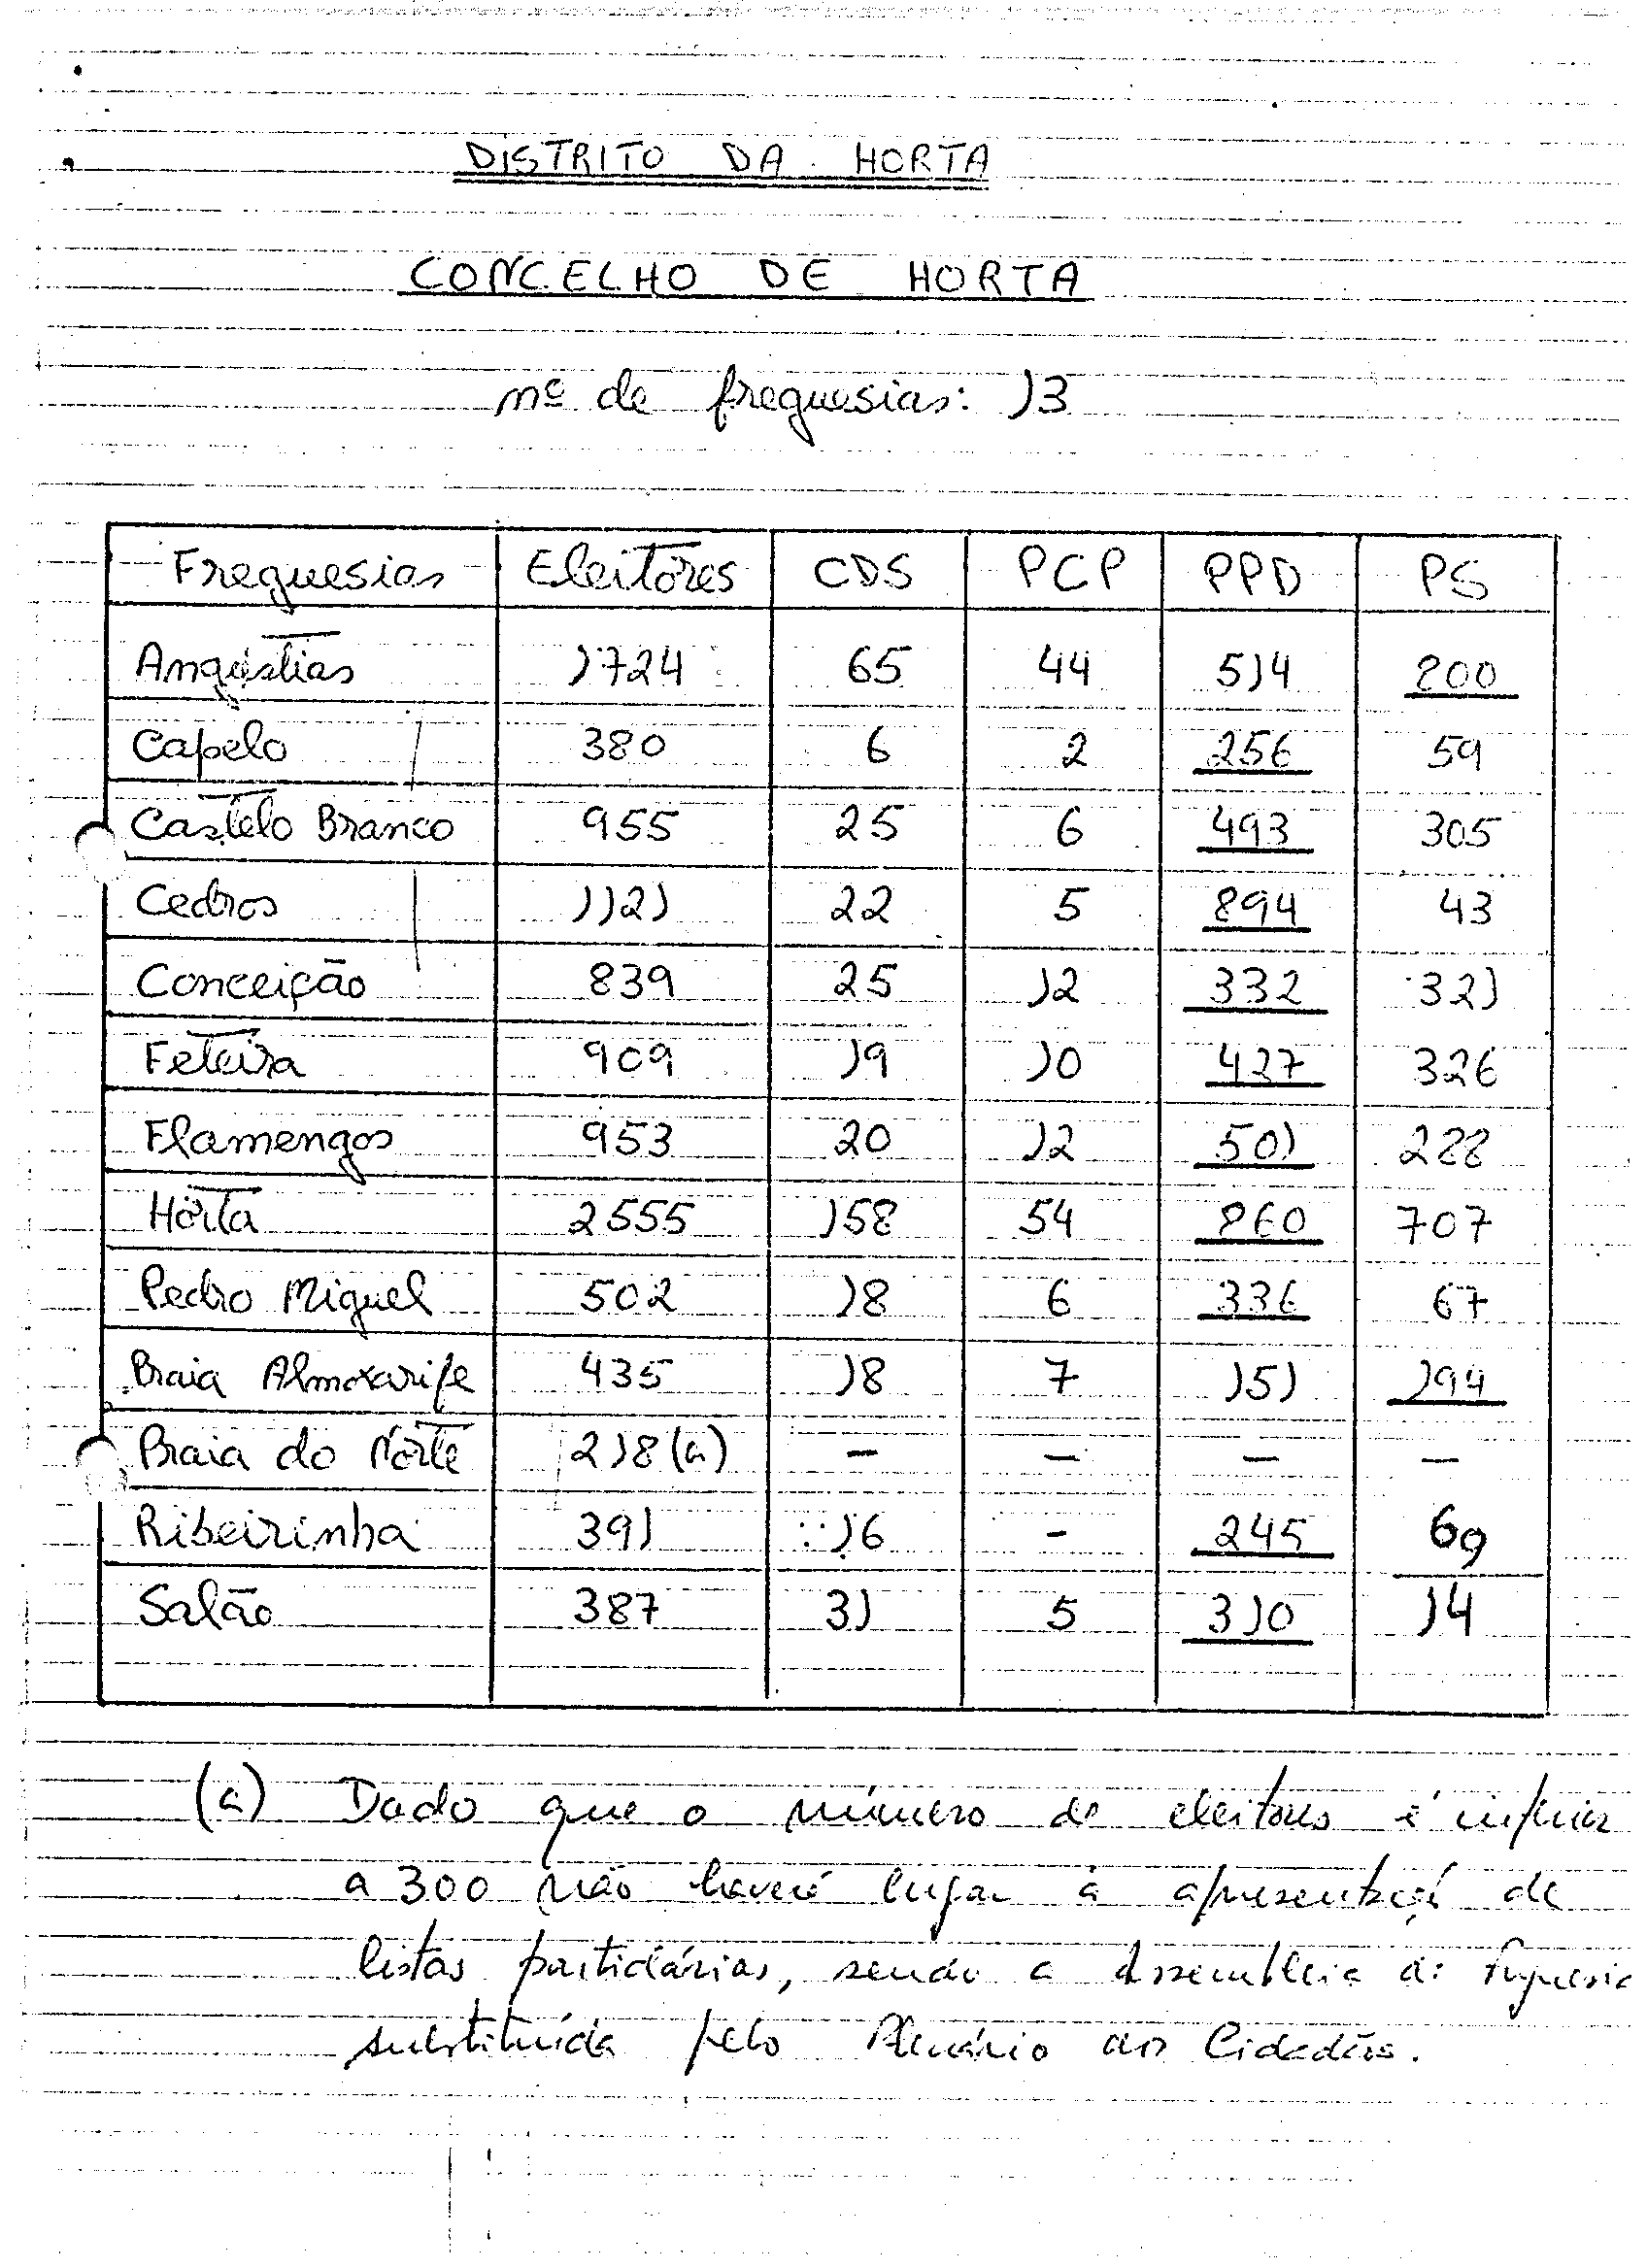 DISTRITO DA HORTA
CONCELHO DE HORTA
nº de freguesias: 13
Freguesias Eleitores CDS PCP PPD PS
Angústias 1724 65 44 514 800
Capelo 380 6 2 256 59
Castelo Branco 955 25 6 493 305
Cedros 1121 22 5 894 43
Conceição 839 25 12 332 321
Feteira 909 19 10 427 326
Flamengos 953 20 12 501 288
Horta 2555 158 54 860 707
Pedro Miguel 502 18 6 336 67
Praia Almoxarife 435 18 7 151 194
Praia do Norte 218 (a) - - - -
Ribeirinha 391 16 - 245 69
Salão 387 31 5 310 14
(a) Dado que o número de eleitores é inferior
a 300 não haverá lugar à apresentação de
listas partidárias, sendo a Assembleia de Freguesia
substituída pelo Plenário dos Cidadãos.